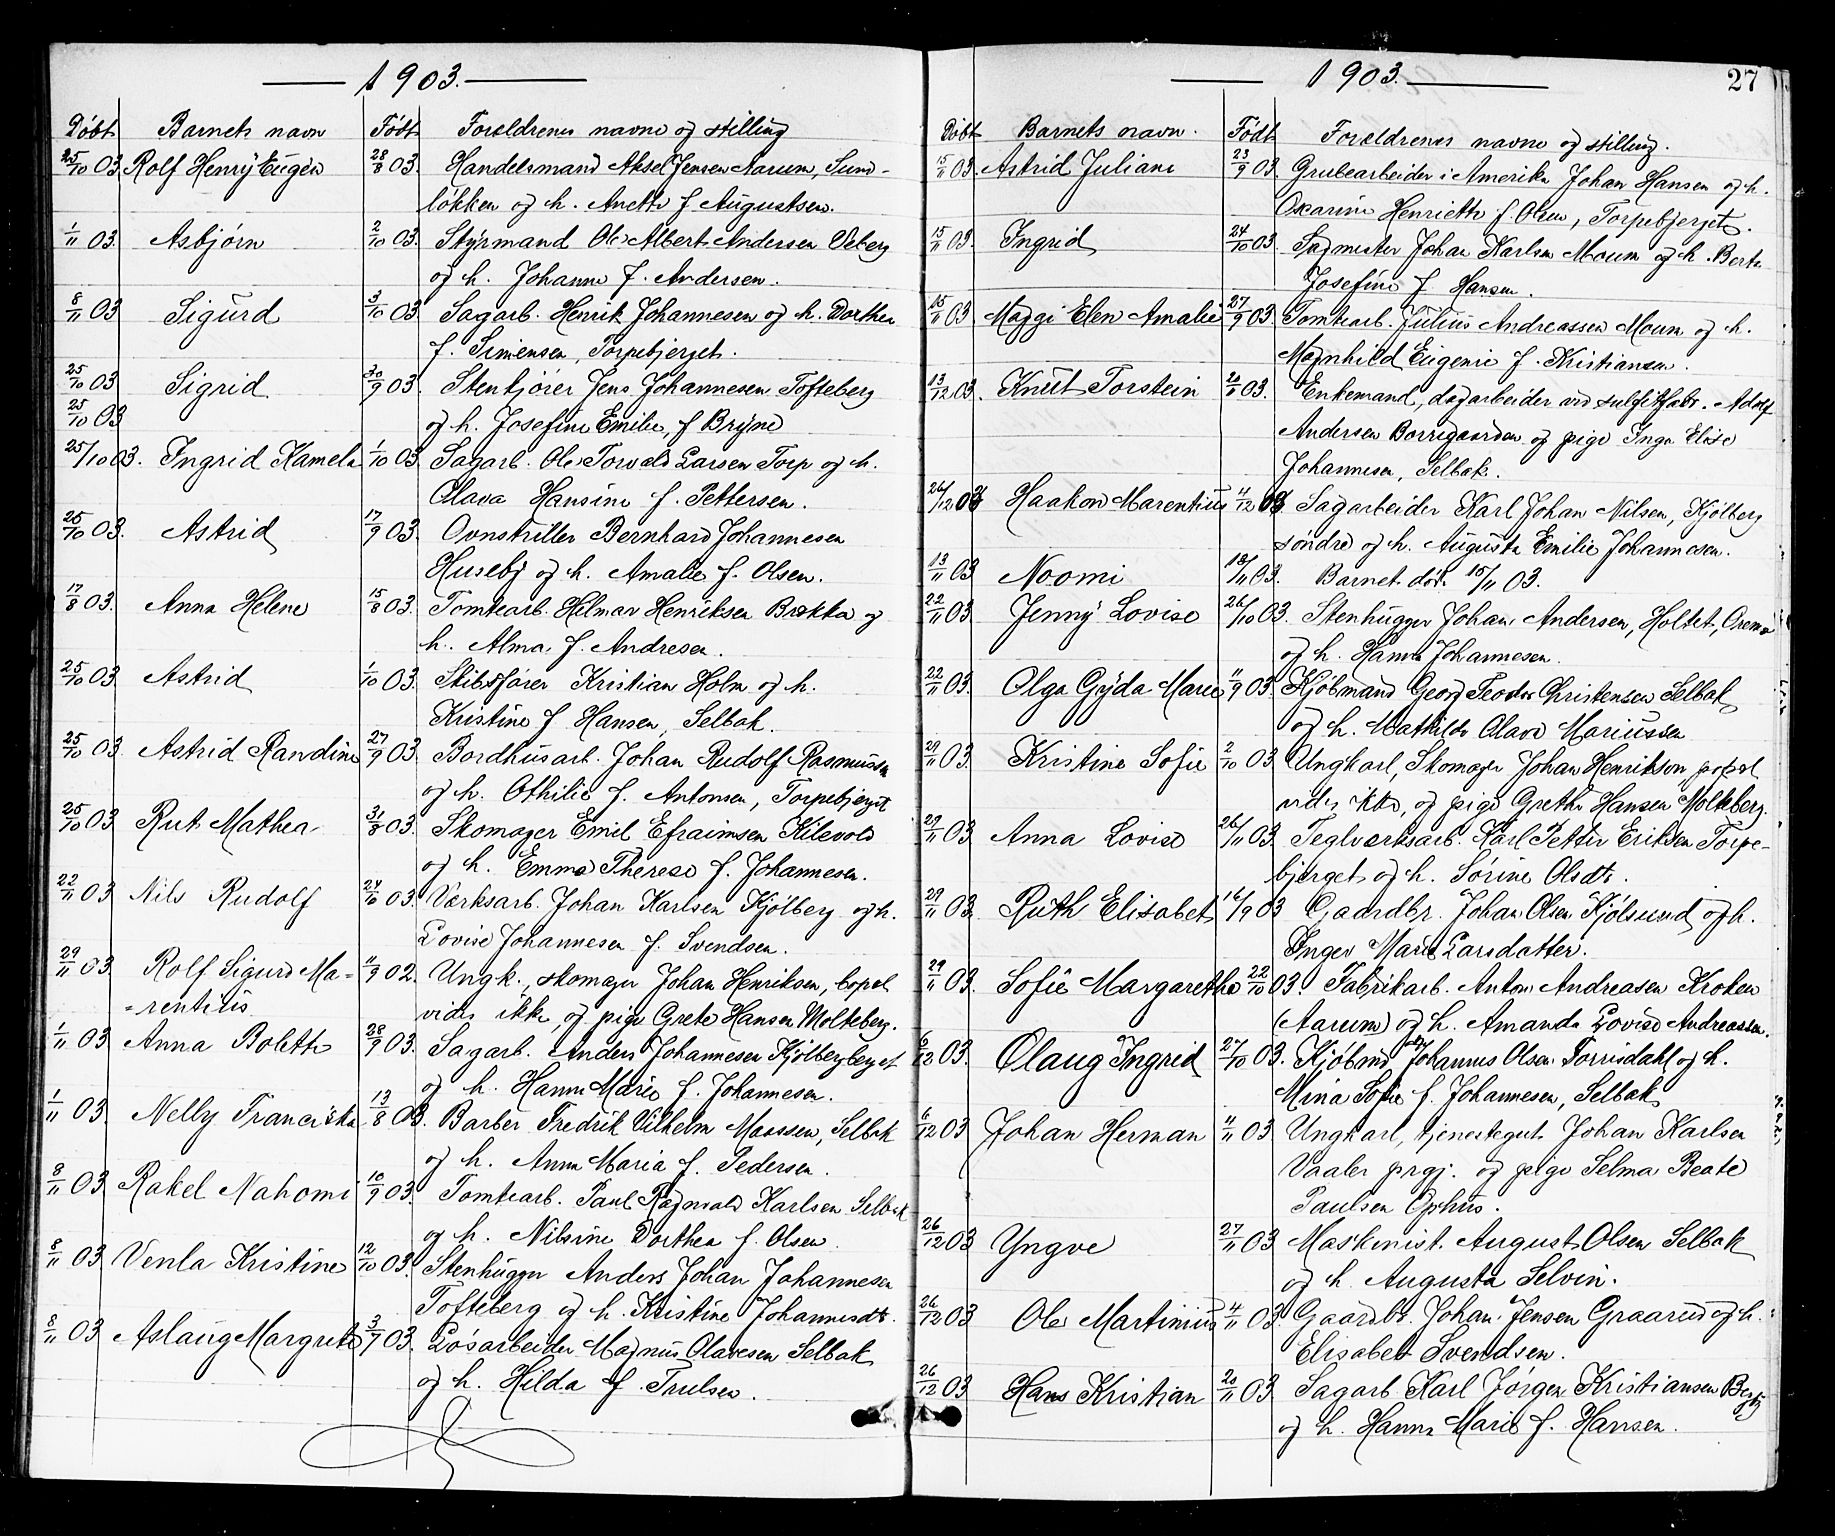 1903.
Døbt Barnets navn Født Forældrenes navne og stilling
25/10 03 Rolf Henry Eugen 28/8 03. Handelsmand Aksel Jensen Aarum, Sund-
løkken og h. Anette f Augustsen.
1/11 03. Asbjørn 2/10 03. Styrmand Ole Albert Andersen Veberg
og h. Johanne f. Andersen.
8/11 03 Sigurd 3/10 03 Sagarb. Henrik Johannesen og h. Dorthea
f. Simensen, Torpebjerget.
25/10 03 Sigrid 30/9 03. Stenkjører Jens Johannesen Tofteberg
25/10 03
og h. Josefine Emilie, f Bryne
25/10 03. Ingrid Kamela 1/10 03. Sagarb. Ole Torvald Larsen Torp og h.
Olava Hansine f. Pettersen.
25/10 03. Astrid 17/9 03. Ovnstiller Bernhard Johannesen
Huseby og h. Amalie f. Olsen.
17/8 03. Anna Helene 15/8 03. Tomtearb. Hilmar Henriksen Brækka og
h. Alma f. Andresen.
25/10 03 Astrid 1/10 03. Skibsfører Kristian Holm og h.
Kristine f Hansen, Selbak.
25/10 03. Astrid Randine 27/9 03. Bordhusarb. Johan Rudolf Rasmussen
og h. Othilie f. Antonsen, Torpebjerget
25/10 03 Rut Mathea 31/8 03. Skomager Emil Efraimsen Kilevold
og h. Emma Therese f. Johannesen.
22/11 03 Nils Rudolf 24/10 03. Værksarb. Johan Karlsen Kjølberg og h.
Lovise Johannesen f. Svendsen.
29/11 03 Rolf Sigurd Ma- 11/9 02. Ungk., skomager Johan Henriksen, bopæl
-rentius vides ikke, og pige Grete Hansen Molkeberg.
1/11 03 Anna Bolette 28/9 03. Sagarb. Anders Johannesen Kjølbergberget
og h. Hanna Marie f. Johannesen.
1/11 03 Nelly Franciska 13/8 03. Barber Fredrik Vilhelm Maassen, Selbak
og h. Anna Maria f. Pedersen.
8/11 03 Rakel Nahomi 10/9 03. Tomtearb. Paul Ragnvald Karlsen Selbak
og h. Nilsine Dorthea f. Olsen.
8/11 03 Venla Kristine 12/10 03. Stenhugger Anders Johan Johannesen
Tofteberg og h. Kristine Johannesdt.
8/11 03 Aslaug Margrete 3/7 03. Løsarbeider Magnus Olavesen Selbak
og h. Hilda f. Trulsen.
1903.
27
Døbt Barnets navn. Født Forældrenes navne og stilling.
15/11 03 Astrid Juliane 23/9 03. Grubearbeider i Amerika Johan Hansen og h.
Oscarine Henriette f. Olsen, Torpebjerget.
15/11 03 Ingrid 24/10 03. Sagmester Johan Karlsen Moum og h. Berte
Josefine f Hansen.
15/11 03 Maggi Elen Amalie 27/9 03. Tomtearb. Julius Andreassen Moum og h.
Magnhild Eugenie f. Kristiansen.
13/12 03. Knut Torstein 2/8 03. Enkemand, dagarbeider ved sulfitfabr. Adolf
Andersen Borregaarden og pige Inga Elise
Johannesen, Selbak.
26/12 03 Haakon Marentius 4/12 03 Sagarbeider Karl Johan Nilsen, Kjølberg
søndre og h. Augusta Emilie Johannesen.
13/11 03 Noomi 12/11 03. Barnet død 15/11 03.
22/11 03 Jenny Lovise 26/10 03. Stenhugger Johan Andersen, Holtet,
og h. Hanna Johannesen.
22/11 03. Olga Gyda Marie 11/9 03 Kjøbmand Georg Teodor Christensen Selbak
og h. Mathilde Olave Mariussen
29/11 03. Kristine Sofie 2/10 03 Ungkarl, Skomager Johan Henrikson, bopæl
vides ikke, og pige Grethe Hansen Molkeberg.
29/11 03 Anna Lovise 26/11 03. Teglværksarb. Karl Petter Eriksen Torpe-
bjerget og h. Sørine Olsdt.
29/11 03. Ruth Elisabet 16/9 03 Gaardbr. Johan Olsen Kjølsund og h.
Inger Marie Larsdatter.
29/11 03. Sofie Margarethe 22/10 03. Fabrikarb. Anton Andreasen Kroken
(Aarum) og h. Amanda Lovise Andreassen.
6/12 03. Olaug Ingrid 27/10 03. Kjøbmd Johannes Olsen Torrisdahl og h.
Mina Sofie f. Johannesen, Selbak
6/12 03 Johan Herman 4/11 03 Ungkarl, tjenestegut Johan Karlsen
Vaaler prgj. og pige Selma Beate
Paulsen Ophus.
26/12 03 Yngve 27/11 03 Maskinist August Olsen Selbak
og h. Augusta Selvin.
26/12 03 Ole Martinius 4/11 03. Gaardbr. Johan Jensen Graarud og h.
Elisabet Svendsen.
26/12 03 Hans Kristian 20/11 03 Sagarb. Karl Jørgen Kristiansen Berg
og h. Hanna Marie f. Hansen.